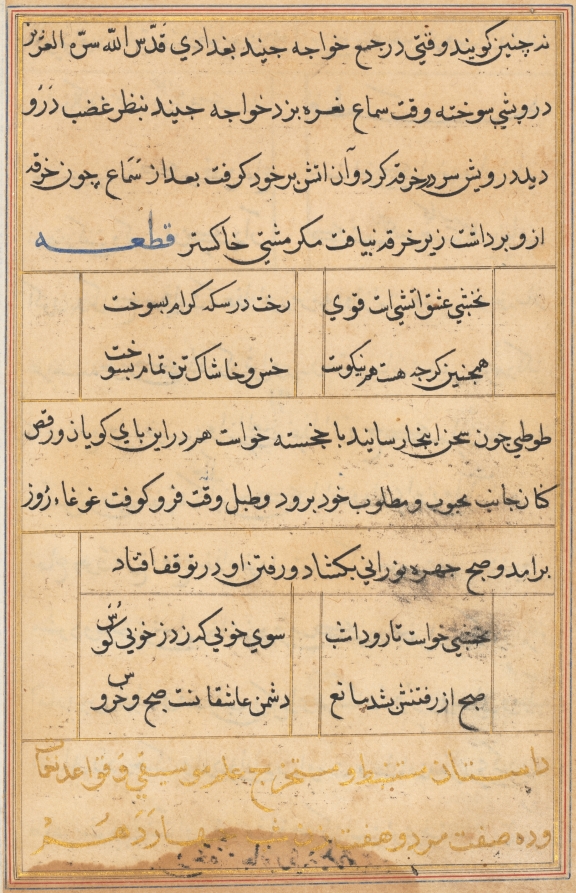 نه چنین کویند وقتی در جمع خواجه جنید بغدادي قدّس الله سرّه العزیز
درویشي سوخته وقت سماع نعره بزد خواجه جنید بنظر غضب درو
دید درویش سر در خرقه کرد و آن اتش بر خود کرفت بعد از سماع چون خرقه
ازو برداشت زیر خرقه نیافت مکر مشتي خاکستر قطعه
نخشبي عشق اتشي است قوي رخت در سکه کرام بسوخت
همچنین کرچه هست هم نیکوست خس و خاشاک تن تمام بسوخت
طوطي چون سخن اینجا رسانید با خجسته خواست هم در این پاي کویان و رقص
کنان جانب محبوب و مطلوب خود برود و طبل وقت فرو کوفت غوغاء روز
برامد و صبح چهره نوراني بکشاد و رفتن او در توقف افتاد
نخشبي خواست تا رود امشب سوي خوبي که زد ز خوبي کوس
صبح از رفتنش بشد مانع دشمن عاشقانست صبح و خروس
داستان مستنبط و مستخرج علم موسیقي و قواعد نغمات
وده صفت مرد و هفت چهاردهم